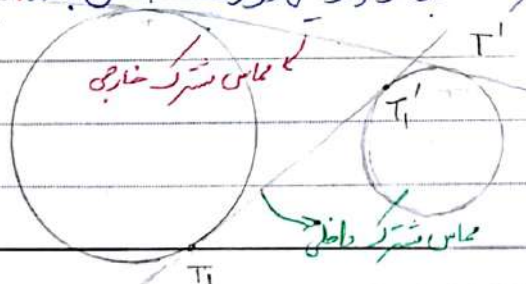 مماس مشترک خارجی
T'
T₁'
مماس مشترک داخلی
T₁